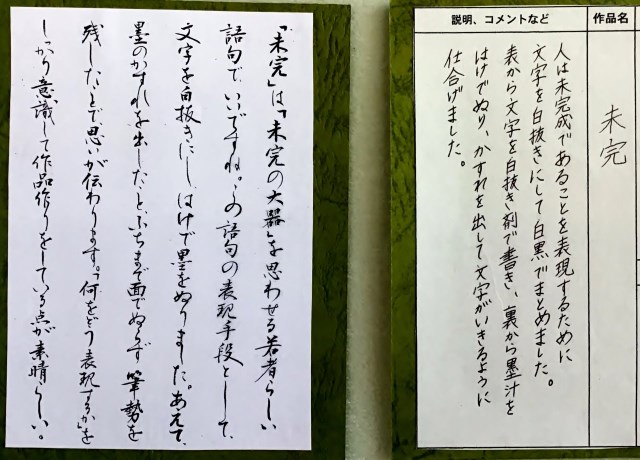 「未完」は「未完の大器」を思わせる若者らしい
語句で、いいですね。この語句の表現手段として、
文字を白抜きにし、はけで墨をぬりました。あえて、
墨のかすれを出したことふちまで面でぬらず筆勢を
残したことで、思いが伝わります。「何をどう表現するか」を
しっかり意識して作品作りをしている点が素晴らしい。
作品名
未完
説明、コメントなど
人は未完成であることを表現するために
文字を白抜きにして白黒でまとめました。
表から文字を白抜き剤で書き、裏から墨汁を
はけでぬり、かすれを出して文字がいきるように
仕合げました。